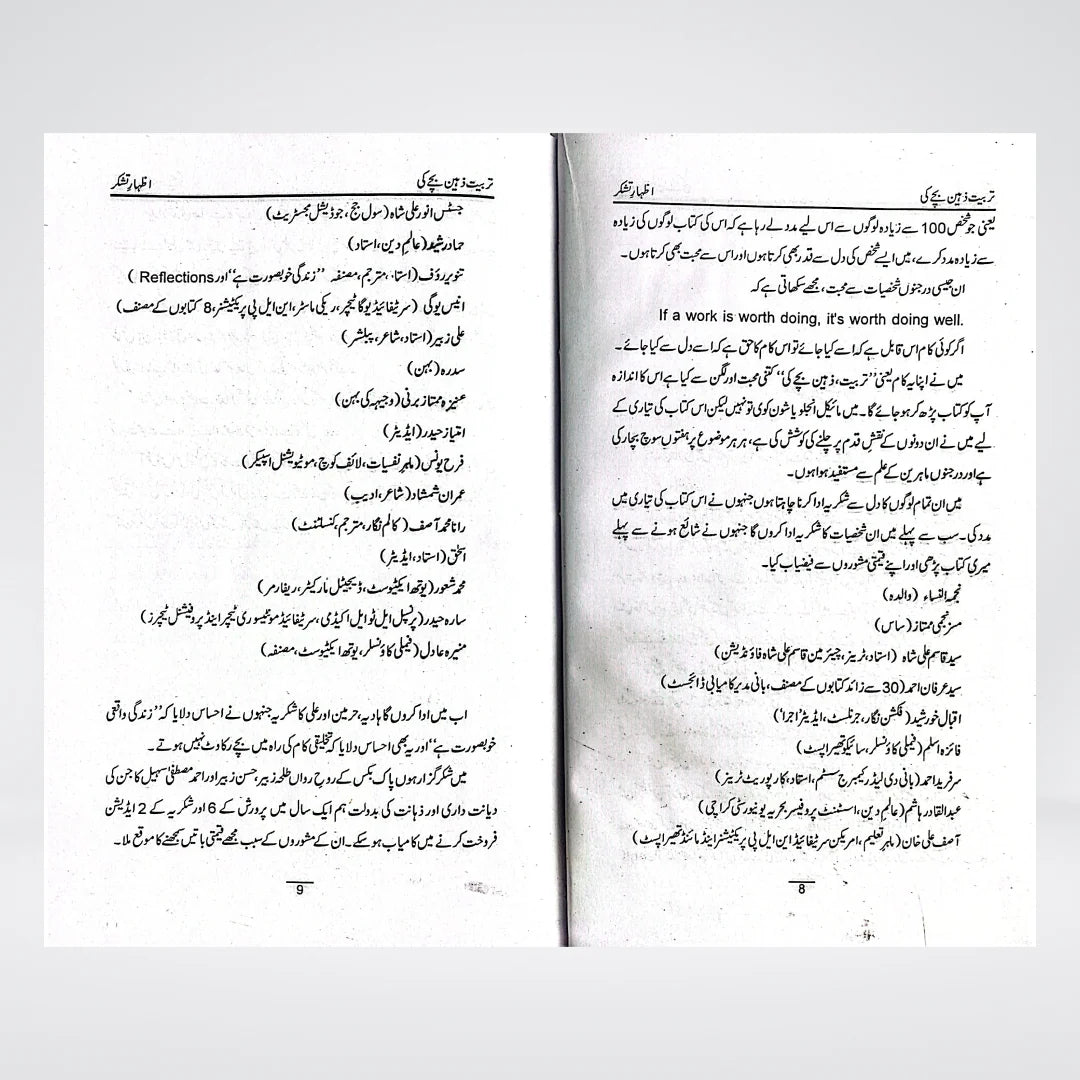 تربیت ذہین بچے کی اظہارِ تشکر
یعنی جو شخص 100 سے زیادہ لوگوں سے اس لیے مدد لے رہا ہے کہ اس کی کتاب لوگوں کی زیادہ
سے زیادہ مدد کرے، میں ایسے شخص کی دل سے قدر بھی کرتا ہوں اور اس سے محبت بھی کرتا ہوں۔
ان جیسی درجنوں شخصیات سے محبت، مجھے سکھاتی ہے کہ
If a work is worth doing, it's worth doing well.
اگر کوئی کام اس قابل ہے کہ اسے کیا جائے تو اس کام کا حق ہے کہ اسے دل سے کیا جائے۔
میں نے اپنا یہ کام یعنی ’’تربیت، ذہین بچے کی‘‘ کتنی محبت اور لگن سے کیا ہے اس کا اندازہ
آپ کو کتاب پڑھ کر ہو جائے گا۔ میں مائیکل انجلو یا شون کوی تو نہیں لیکن اس کتاب کی تیاری کے
لیے میں نے ان دونوں کے نقشِ قدم پر چلنے کی کوشش کی ہے، ہر ہر موضوع پر ہفتوں سوچ بچار کی
ہے اور درجنوں ماہرین کے علم سے مستفید ہوا ہوں۔
میں ان تمام لوگوں کا دل سے شکریہ ادا کرنا چاہتا ہوں جنہوں نے اس کتاب کی تیاری میں
مدد کی۔ سب سے پہلے میں ان شخصیات کا شکریہ ادا کروں گا جنہوں نے شائع ہونے سے پہلے
میری کتاب پڑھی اور اپنے قیمتی مشوروں سے فیضیاب کیا۔
نجمۃ النساء (والدہ)
مسز نجمی ممتاز (ساس)
سید قاسم علی شاہ (استاد، ٹرینر، چیئرمین قاسم علی شاہ فاؤنڈیشن)
سید عرفان احمد (30 سے زائد کتابوں کے مصنف، بانی مدیر کامیابی ڈائجسٹ)
اقبال خورشید (فکشن نگار، جرنلسٹ، ایڈیٹر ’اجرا‘)
فائزہ اسلم (فیملی کاؤنسلر، سائیکوتھیراپسٹ)
سر فرید احمد (بانی دی لیڈر کیمبرج سسٹم، استاد، کارپوریٹ ٹرینر)
عبدالقادر ہاشم (عالمِ دین، اسسٹنٹ پروفیسر بحریہ یونیورسٹی کراچی)
آصف علی خان (ماہرِ تعلیم، امریکن سرٹیفائیڈ این ایل پی پریکٹیشنر اینڈ مائنڈ تھیراپسٹ)
8
تربیت ذہین بچے کی اظہارِ تشکر
جسٹس انور علی شاہ (سول جج، جوڈیشل مجسٹریٹ)
حماد رشید (عالمِ دین، استاد)
تنویر رؤف (استاد، مترجم، مصنفہ ’’زندگی خوبصورت ہے‘‘ اور Reflections)
انیس یوگی (سرٹیفائیڈ یوگا ٹیچر، ریکی ماسٹر، این ایل پی پریکٹیشنر، 8 کتابوں کے مصنف)
علی زبیر (استاد، شاعر، پبلشر)
سدرہ (بہن)
عنیزہ ممتاز برنی (وجیہہ کی بہن)
امتیاز حیدر (ایڈیٹر)
فرح یونس (ماہرِ نفسیات، لائف کوچ، موٹیویشنل اسپیکر)
عمران شمشاد (شاعر، ادیب)
رانا محمد آصف (کالم نگار، مترجم، کنسلٹنٹ)
اسحٰق (استاد، ایڈیٹر)
محمد شعور (یوتھ ایکٹیوسٹ، ڈیجیٹل مارکیٹر، ریفارمر)
سارہ حیدر (پرنسپل ایل ٹو ایل اکیڈمی، سرٹیفائیڈ مونٹیسوری ٹیچر اینڈ پروفیشنل ٹیچرز)
منیرہ عادل (فیملی کاؤنسلر، یوتھ ایکٹیوسٹ، مصنفہ)
اب میں ادا کروں گا ہادیہ، حرمین اور علی کا شکریہ جنہوں نے احساس دلایا کہ ’’زندگی واقعی
خوبصورت ہے‘‘ اور یہ بھی احساس دلایا کہ تخلیقی کام کی راہ میں بچے رکاوٹ نہیں ہوتے۔
میں شکر گزار ہوں پاک بکس کے روحِ رواں طلحہ زبیر، حسن زبیر اور احمد مصطفیٰ سہیل کا جن کی
دیانت داری اور ذہانت کی بدولت ہم ایک سال میں پرورش کے 6 اور شکریہ کے 2 ایڈیشن
فروخت کرنے میں کامیاب ہو سکے۔ ان کے مشوروں کے سبب مجھے قیمتی باتیں سمجھنے کا موقع ملا۔
9